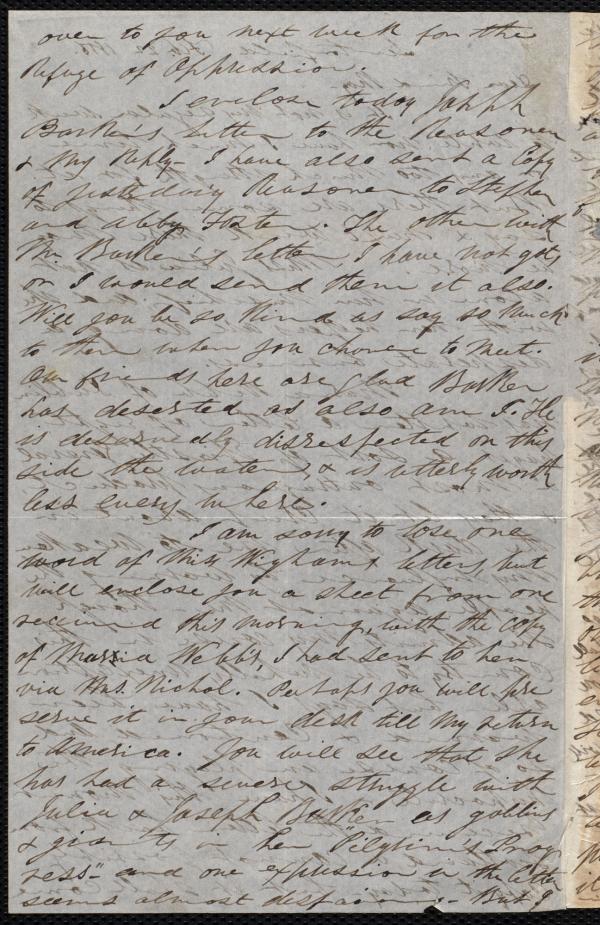 over to you next week for the
Refuge of Oppression.
I enclose today Joseph
Barker's Letter to the Reasoner
& My Reply - I have also sent a Copy
of yesterday's Reasoner to Stephen
and Abby Foster. The other with
Mr. Barker's letter I have not got,
or I would send them it also.
Will you be so kind as say so much
to them when you chance to meet.
Our friends here are glad Barker
has deserted as also am I. He
is deservedly disrespected on this
side the water, & is utterly worth
less every where.
I am sorry to lose one
word of Miss Wigham's letters, but
will enclose you a sheet from one
received this morning, with the copy
of Maria Webb's, I had sent to her
via Mrs. Nichol. Perhaps you will pre
serve it in your desk till my return
to America. You will see that she
has had a severe struggle with
Julia & Joseph Barker as goblins
& giants in her "Pilgrim's Prog
ress" - and one expression in the letter
seems almost despairing. - But I